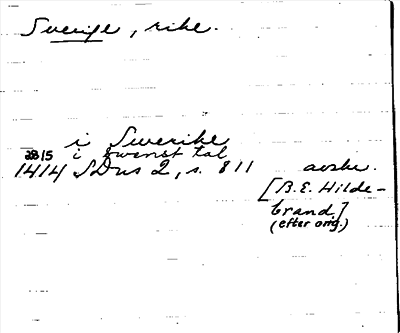 Sverige, rike.
i Swerike
i swenst tal
28/5
1414 SDns 2, s. 811 avskr.
[B.E. Hilde-
brand]
(efter orig.)